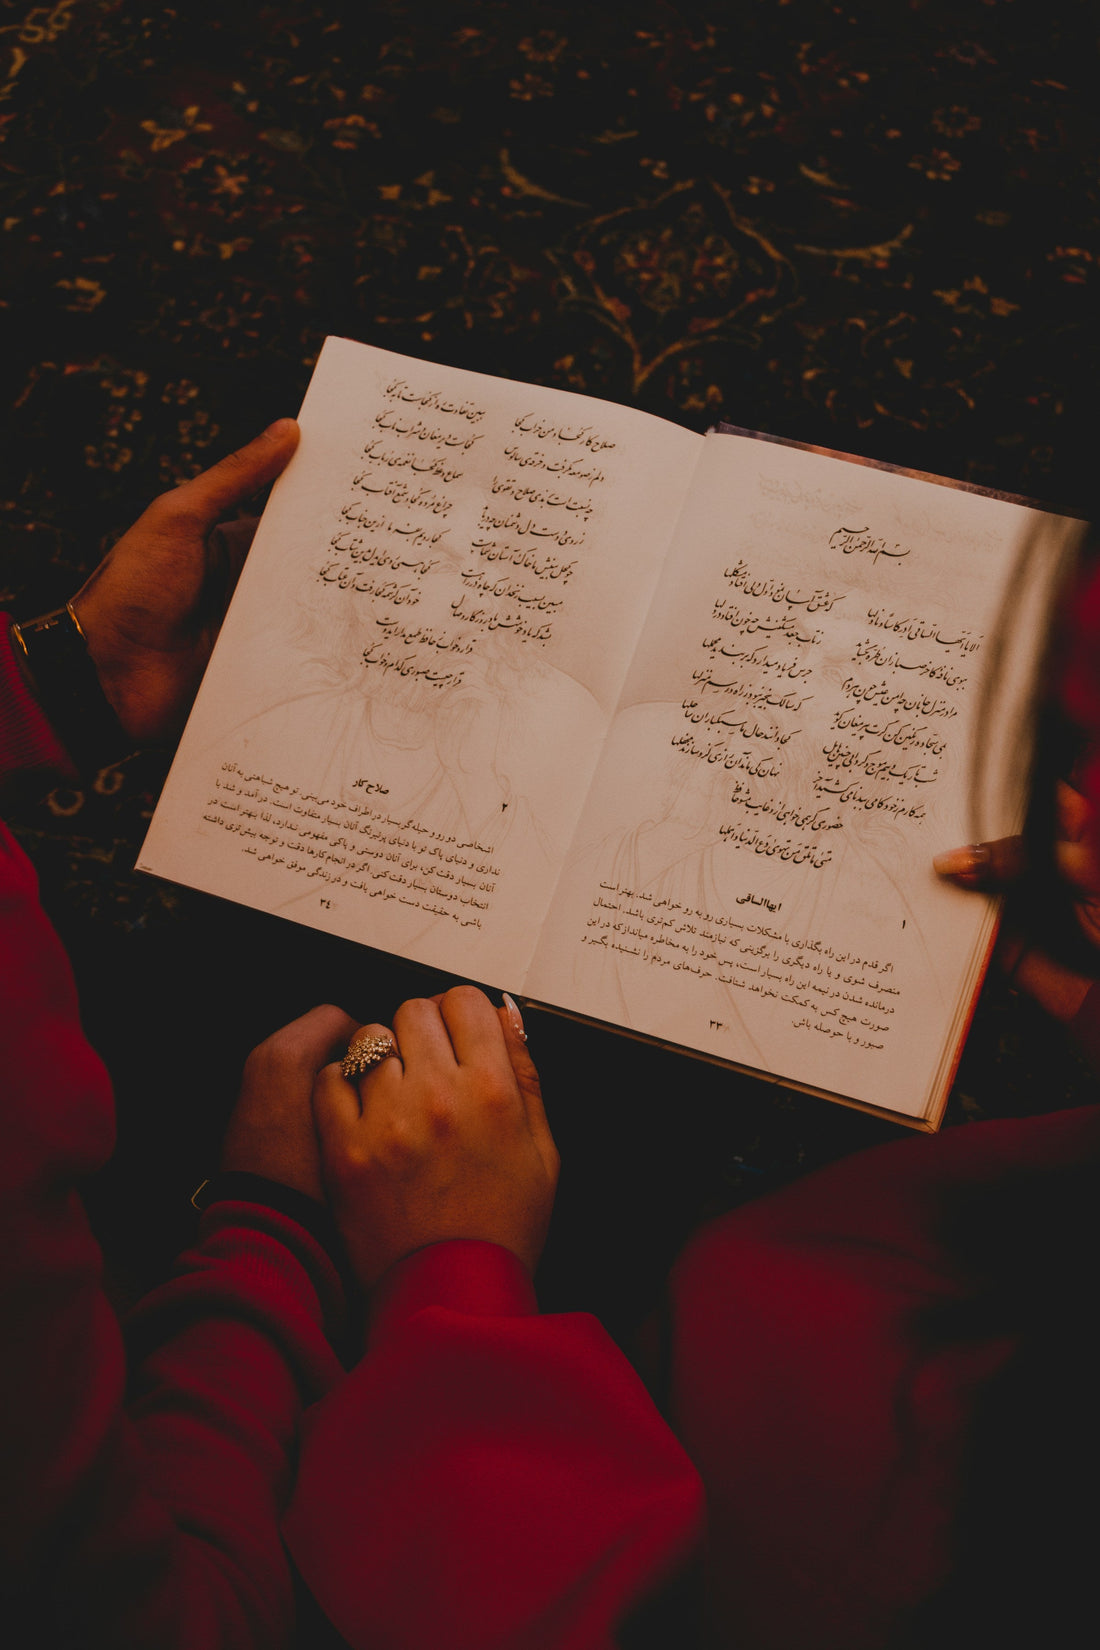 بسم الله الرحمن الرحیم
اَلا یا اَیُّهَا السّاقی اَدِر کَاْساً وَ ناوِلها که عشق آسان نمود اوّل ولی افتاد مشکلها
ببوی نافه کاخر صبا زان طرّه بگشاید ز تاب جعد مشکینش چه خون افتاد در دلها
مرا در منزل جانان چه امن عیش چون هر دم جرس فریاد میدارد که بربندید محملها
بمی سجّاده رنگین کن گرت پیر مغان گوید که سالک بیخبر نبود ز راه و رسم منزلها
شب تاریک و بیم موج و گردابی چنین هایل کجا دانند حال ما سبکباران ساحلها
همه کارم ز خود کامی ببدنامی کشید آخر نهان کی ماند آن رازی کزو سازند محفلها
حضوری گر همی خواهی ازو غایب مشو حافظ
متی ما تلق من تهوی دع الدّنیا و اهملها
۱
ایهاالساقی
اگر قدم در این راه بگذاری با مشکلات بسیاری رو به رو خواهی شد. بهتر است
منصرف شوی و یا راه دیگری را برگزینی که نیازمند تلاش کم‌تری باشد. احتمال
درمانده شدن در نیمه این راه بسیار است، پس خود را به مخاطره میانداز که در این
صورت هیچ کس به کمکت نخواهد شتافت. حرف‌های مردم را نشنیده بگیر و
صبور و با حوصله باش.
۳۳
صلاح کار کجا و من خراب کجا ببین تفاوت ره از کجاست تا بکجا
دلم ز صومعه بگرفت و خرقهٔ سالوس کجاست دیر مغان و شراب ناب کجا
چه نسبت است برندی صلاح و تقوی را سماع وعظ کجا نغمهٔ رباب کجا
ز روی دوست دل دشمنان چه دریابد چراغ مرده کجا و شمع آفتاب کجا
چو کحل بینش ما خاک آستان شماست کجا رویم بفرما ازین جناب کجا
مبین بسیب زنخدان که چاه در راه است کجا همی روی ایدل بدین شتاب کجا
بشد که یاد خوشش باد روزگار وصال خود آن کرشمه کجا رفت و آن عتاب کجا
قرار و خواب ز حافظ طمع مدار ایدوست
قرار چیست صبوری کدام و خواب کجا
۲
صلاح کار
اشخاصی دورو و حیله‌گر بسیار در اطراف خود می‌بینی. تو هیچ شباهتی به آنان
نداری و دنیای پاک تو با دنیای پرنیرنگ آنان بسیار متفاوت است. در آمد و شد با
آنان بسیار دقت کن، برای آنان دوستی و پاکی مفهومی ندارد، لذا بهتر است در
انتخاب دوستان بسیار دقت کنی. اگر در انجام کارها دقت و توجه بیش‌تری داشته
باشی به حقیقت دست خواهی یافت و در زندگی موفق خواهی شد.
۳٤